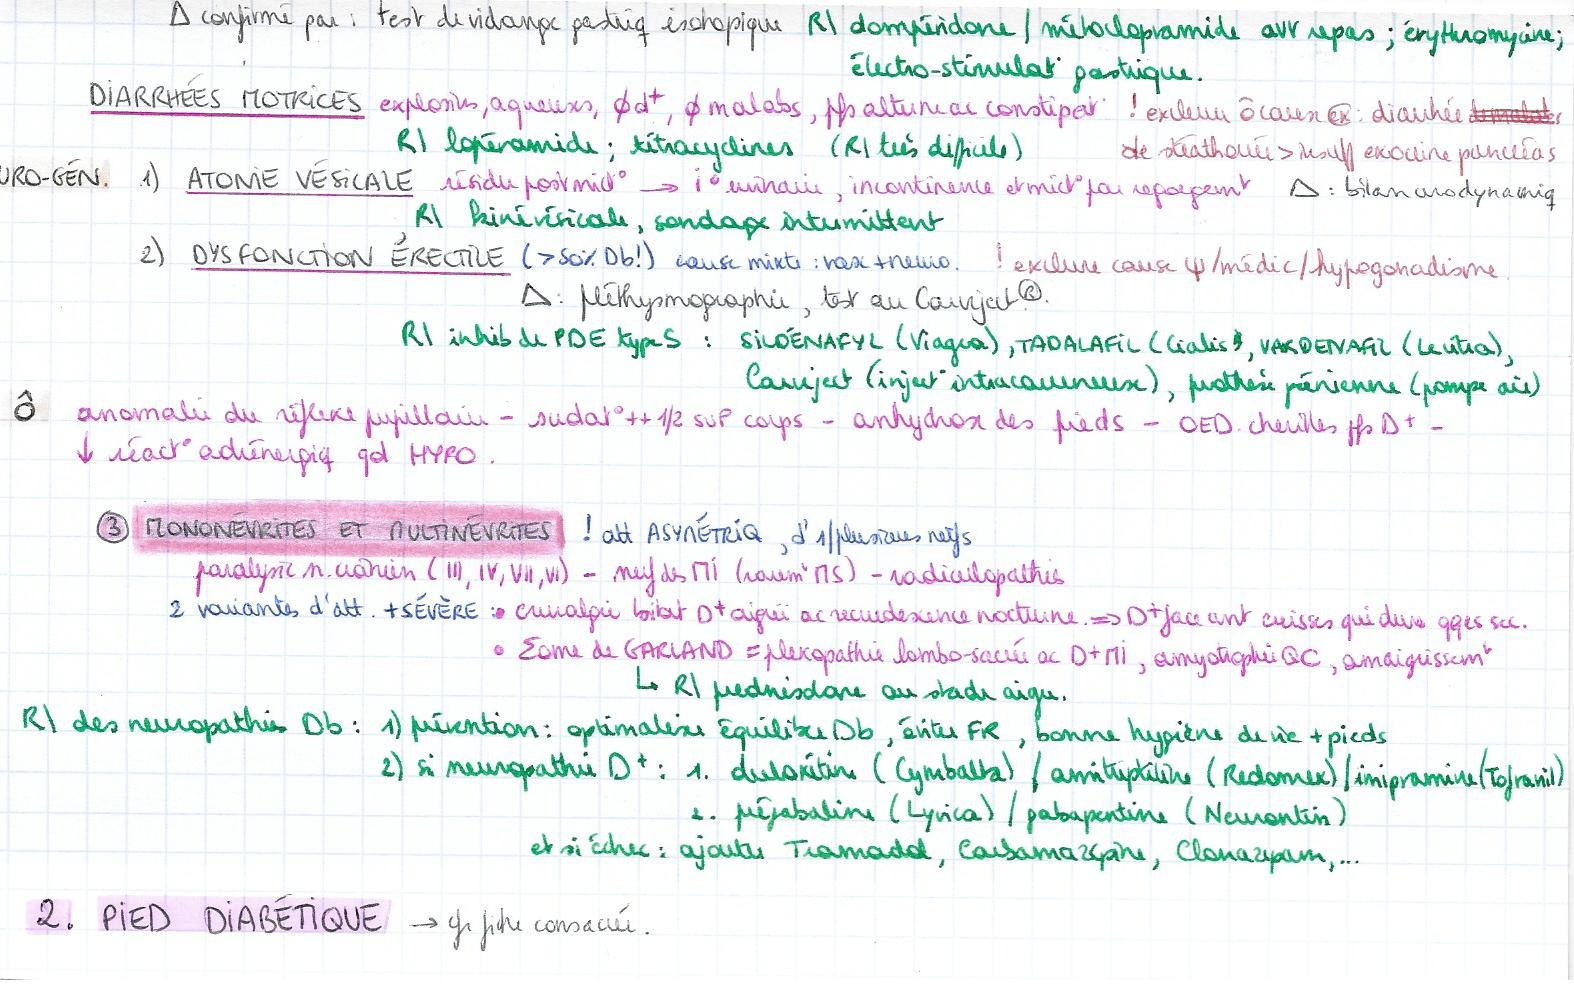 Δ confirmé par : test de vidange gastriq isotopique R\ dompéridone / métoclopramide avt repas ; érythromycine ;
électro-stimulat° gastrique.
DIARRHÉES MOTRICES explosives, aqueuses, φ d+, φ malabs, pfs alterne ac constipat° ! exclure ô causes ex : diarrhée
R\ lopéramide ; tétracyclines (R\ très difficile) de stéathorrée > insuff exocrine pancréas
URO-GÉN. 1) ATONIE VÉSICALE résidu postmict° → i° urinaire, incontinence et mict° par regorgemt Δ : bilan urodynamiq
R\ kiné vésicale, sondage intermittent
2) DYSFONCTION ÉRECTILE (>50% Db!) cause mixte : vasc + neuro. ! exclure cause ψ/médic/hypogonadisme
Δ : pléthysmographie, test au Caverject®.
R\ inhib de PDE type 5 : SILDÉNAFYL (Viagra), TADALAFIL (Cialis), VARDENAFIL (Levitra),
Caverject (inject° intracaverneuse), prothèse pénienne (pompe air)
ô anomalie du réflexe pupillaire - sudat° ++ 1/2 sup corps - anhydrose des pieds - OED. chevilles pfs D+ -
↓ réact° adrénergiq qd HYPO.
③ MONONÉVRITES ET MULTINÉVRITES ! att ASYMÉTRIQ, d'1/plusieurs nerfs
paralysie n. crânien (III, IV, VII, VI) - nerf des MI (rarem^t MS) - radiculopathies
2 variantes d'att. + SÉVÈRE : • cruralgie bilat D+ aiguë ac recrudescence nocturne. => D+ face ant cuisses qui dure qqes sec.
• Σome de GARLAND = plexopathie lombo-sacrée ac D+ MI, amyotrophie QC, amaigrissem^t
↳ R\ prednisolone au stade aigu.
R\ des neuropathies Db : 1) prévention : optimaliser équilibre Db, éviter FR, bonne hygiène de vie + pieds
2) si neuropathie D+ : 1. duloxétine (Cymbalta) / amitriptiline (Redomex) / imipramine (Tofranil)
2. prégabaline (Lyrica) / gabapentine (Neurontin)
et si échec : ajouter Tramadol, Carbamazépine, Clonazepam, ...
2. PIED DIABÉTIQUE → cfr fiche consacrée.